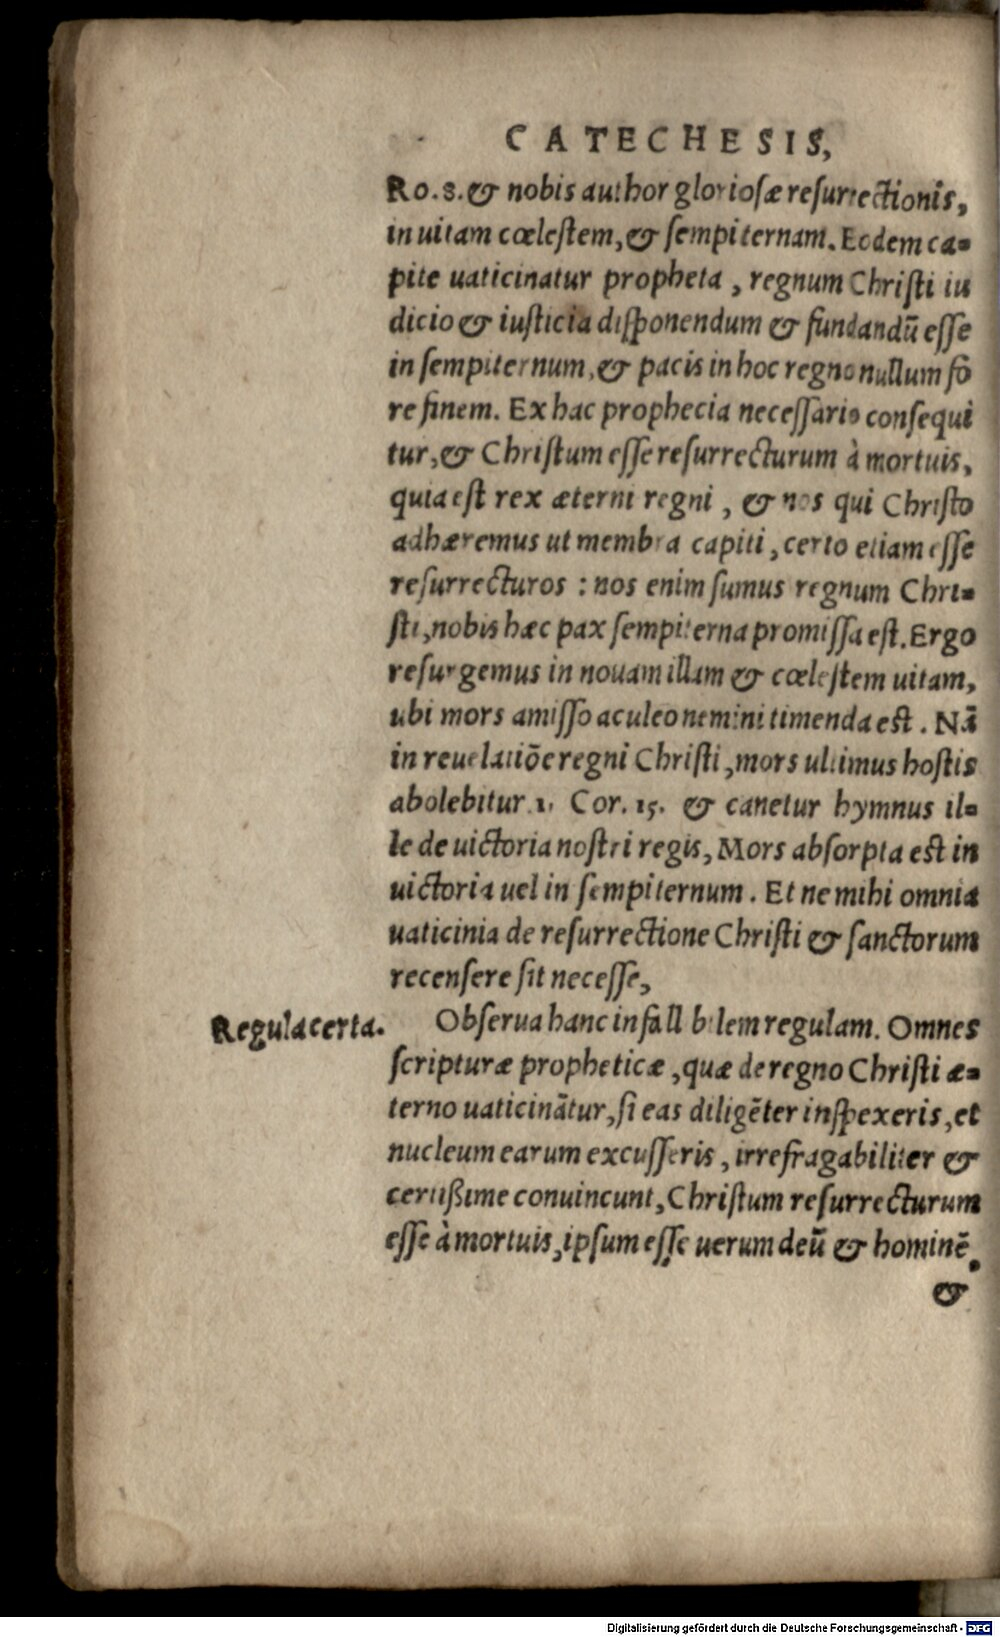 CATECHESIS,
Ro. 8. & nobis author gloriosæ resurrectionis,
in uitam cœlestem, & sempiternam. Eodem ca=
pite uaticinatur propheta, regnum Christi iu
dicio & iusticia disponendum & fundandū esse
in sempiternum, & pacis in hoc regno nullum fo
re finem. Ex hac prophecia necessario consequi
tur, & Christum esse resurrecturum à mortuis,
quia est rex æterni regni, & nos qui Christo
adhæremus ut membra capiti, certo etiam esse
resurrecturos : nos enim sumus regnum Chri=
sti, nobis hæc pax sempiterna promissa est. Ergo
resurgemus in nouam illam & cœlestem uitam,
ubi mors amisso aculeo nemini timenda est. Nā
in reuelatiōe regni Christi, mors ultimus hostis
abolebitur 1. Cor. 15. & canetur hymnus il=
le de uictoria nostri regis, Mors absorpta est in
uictoria uel in sempiternum. Et ne mihi omnia
uaticinia de resurrectione Christi & sanctorum
recensere sit necesse,
Regula certa.
Obserua hanc infallibilem regulam. Omnes
scripturæ propheticæ, quæ de regno Christi æ=
terno uaticināntur, si eas diligēter inspexeris, et
nucleum earum excusseris, irrefragabiliter &
certißime conuincunt, Christum resurrecturum
esse à mortuis, ipsum esse uerum deū & hominē.
&
Digitalisierung gefördert durch die Deutsche Forschungsgemeinschaft - DFG